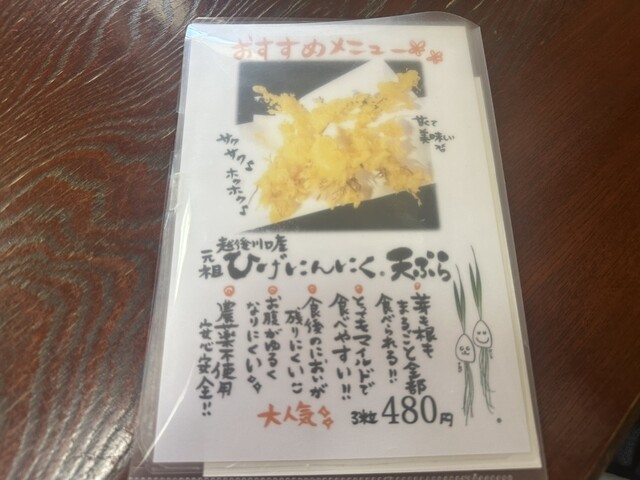 おすすめメニュー
サクサク♪
ホクホク♪
甘くて
美味しい
越後川口産
元祖
ひげにんにく天ぷら
芽も根も
まるごと全部
食べられる!!
とてもマイルドで
食べやすい!!
食後のにおいが
残りにくい
お腹がゆるく
なりにくい
農薬不使用
安心安全!!
大人気
3粒480円